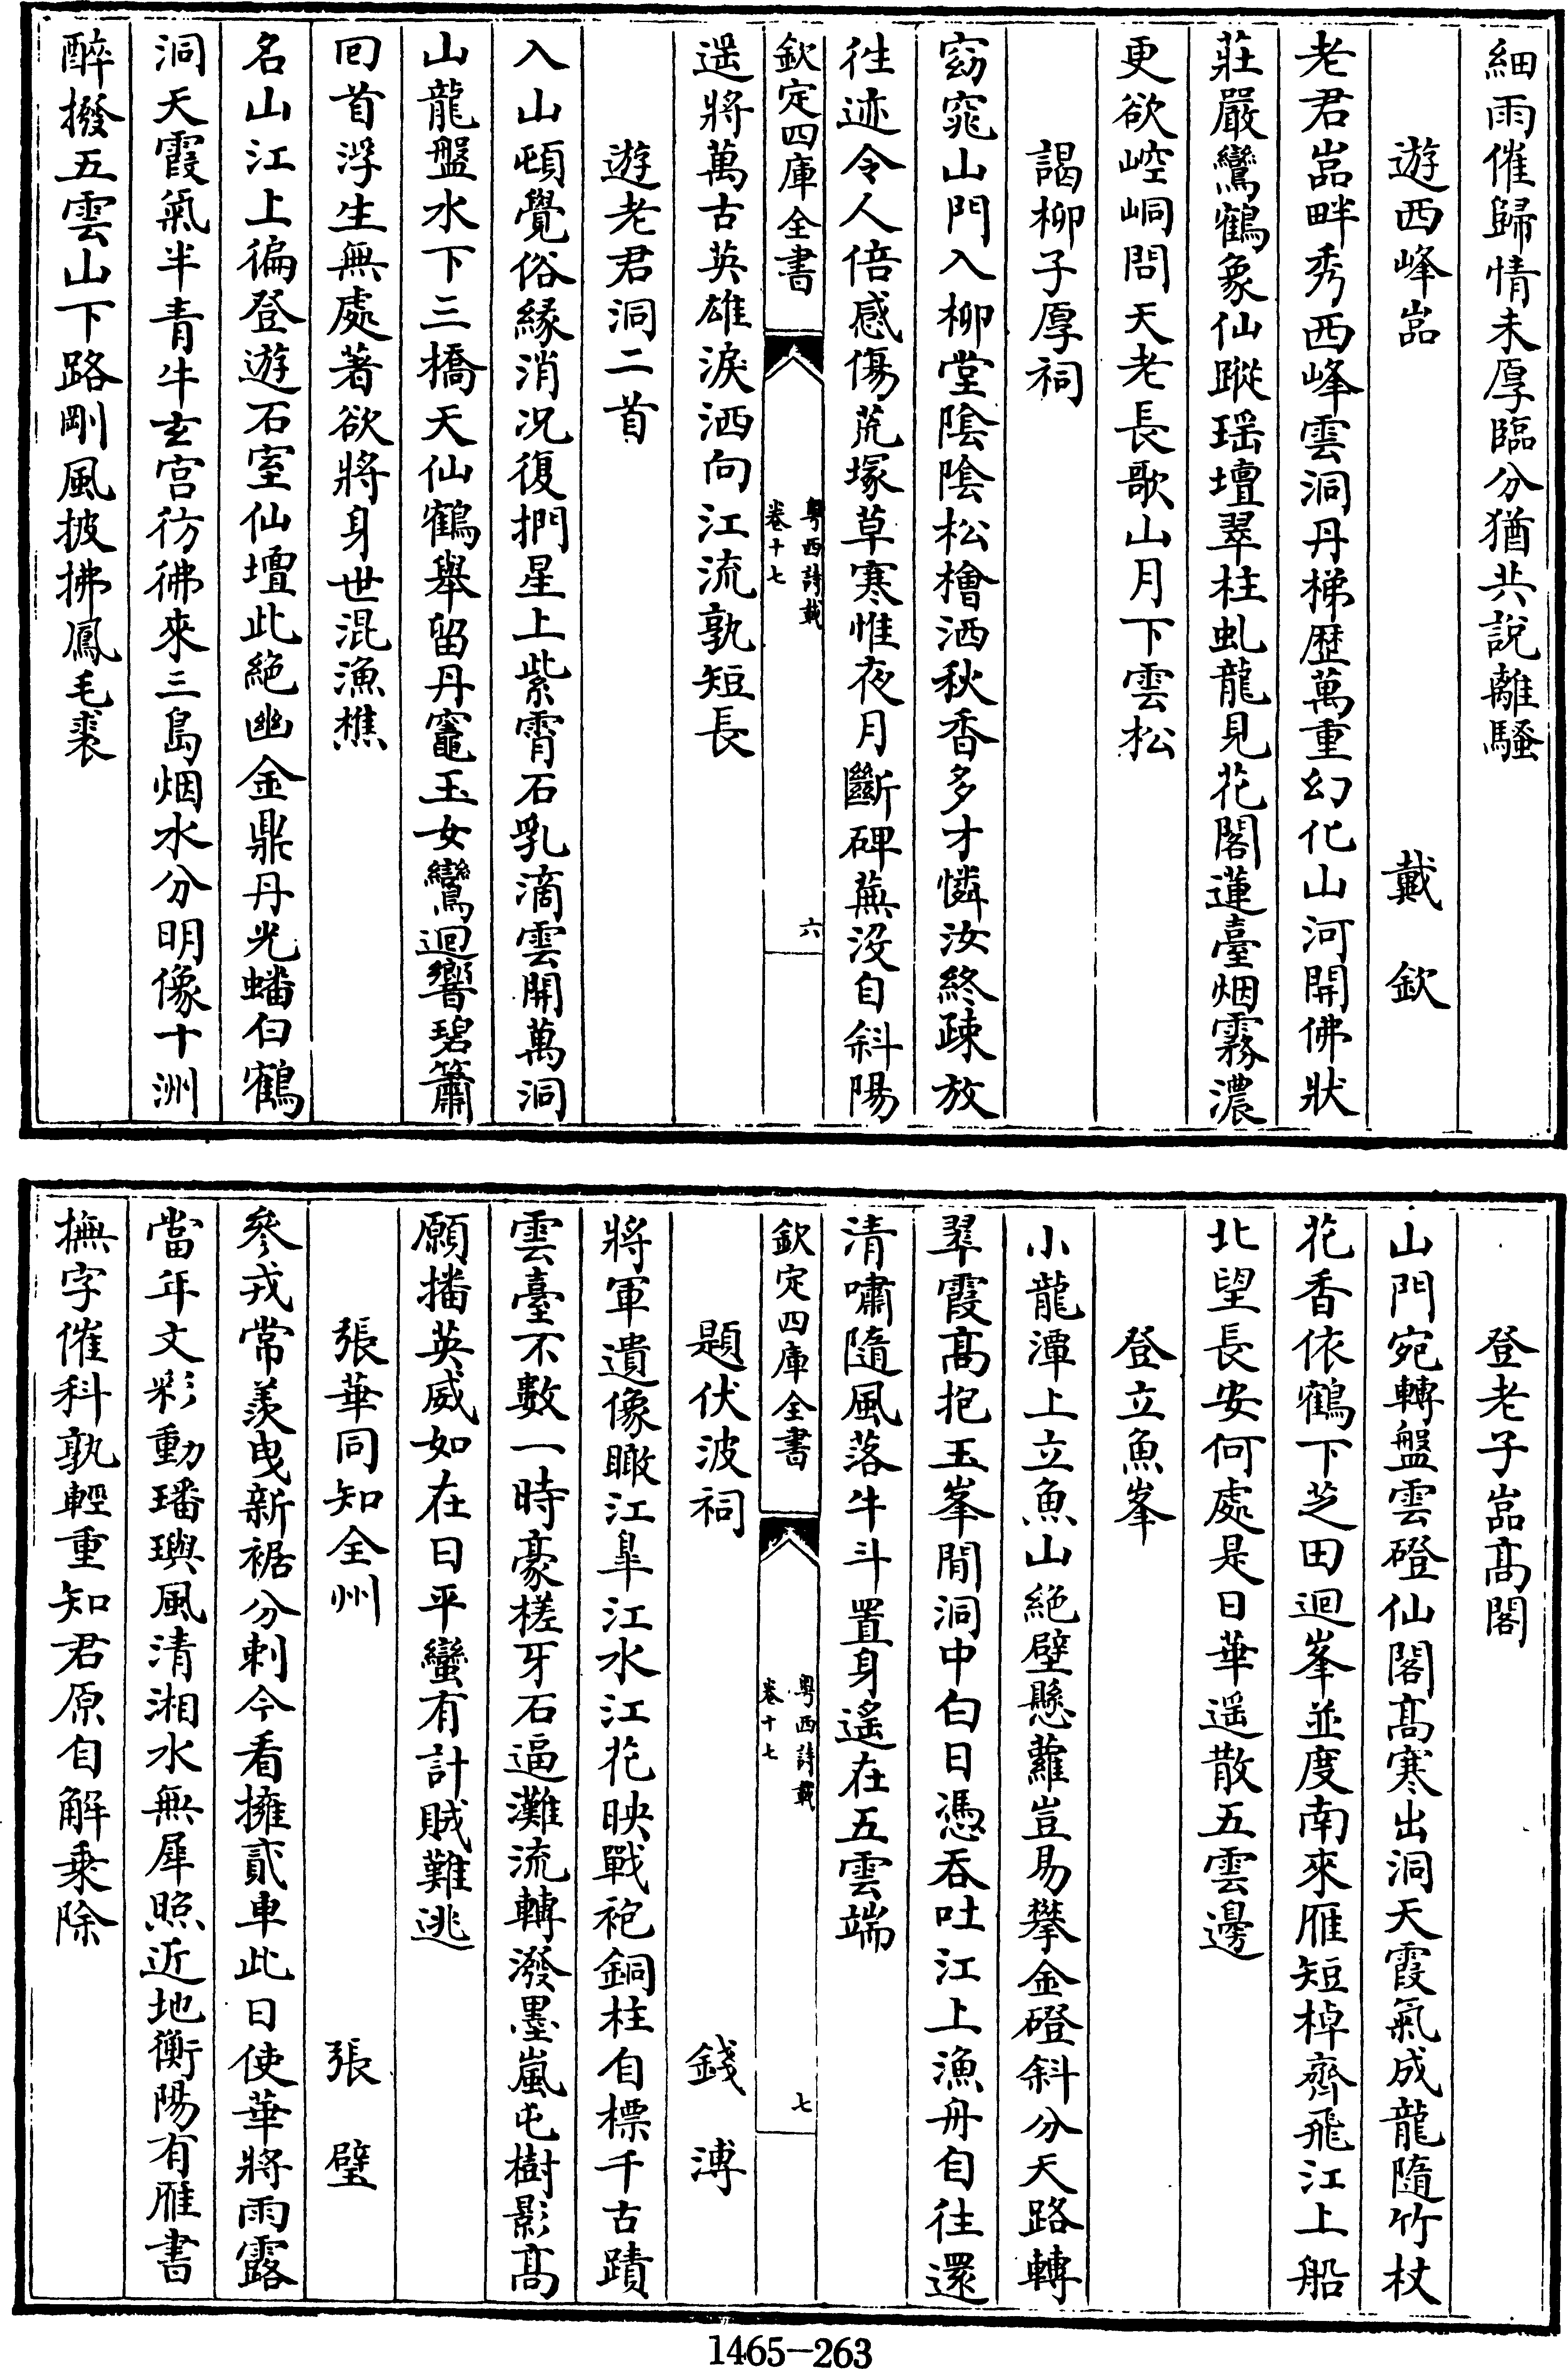 細雨催歸情未厚臨分猶共說離騷
遊西峰嵓　戴欽
老君嵓畔秀西峰雲洞丹梯歷萬重幻化山河開佛狀
莊嚴鸞鶴象仙蹤瑶壇翠柱虬龍見花閣蓮臺烟霧濃
更欲崆峒問天老長歌山月下雲松
謁柳子厚祠
窈窕山門入柳堂陰陰松檜洒秋香多才憐汝終疎放
徃迹令人倍感傷荒塚草寒惟夜月斷碑蕪沒自斜陽
欽定四庫全書
粤西詩載
卷十七
六
遥將萬古英雄淚洒向江流孰短長
遊老君洞二首
入山頓覺俗緣消况復捫星上紫霄石乳滴雲開萬洞
山龍盤水下三橋天仙鶴舉留丹竈玉女鸞迴響碧簫
回首浮生無處著欲將身世混漁樵
名山江上徧登遊石室仙壇此絶幽金鼎丹光蟠白鶴
洞天霞氣半青牛玄宫彷彿來三島烟水分明像十洲
醉撥五雲山下路剛風披拂鳳毛裘
登老子嵓髙閣
山門宛轉盤雲磴仙閣髙寒出洞天霞氣成龍隨竹杖
花香依鶴下芝田迴峯並度南來雁短棹齊飛江上船
北望長安何處是日華遥散五雲邊
登立魚峯
小龍潭上立魚山絶壁懸蘿豈易攀金磴斜分天路轉
翠霞髙抱玉峯閒洞中白日憑吞吐江上漁舟自往還
清嘯隨風落牛斗置身遙在五雲端
欽定四庫全書
粤西詩載
卷十七
七
題伏波祠　錢溥
將軍遺像瞰江臯江水江花映戰袍銅柱自標千古蹟
雲臺不數一時豪槎牙石逼灘流轉潑墨嵐屯樹影髙
願播英威如在日平蠻有計賊難逃
張華同知全州　張璧
參戎常羡曳新裾分刺今看擁貳車此日使華將雨露
當年文彩動璠璵風清湘水無犀照近地衡陽有雁書
撫字催科孰輕重知君原自解乗除
1465-263